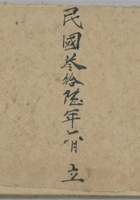 民國叄拾陸年一月立